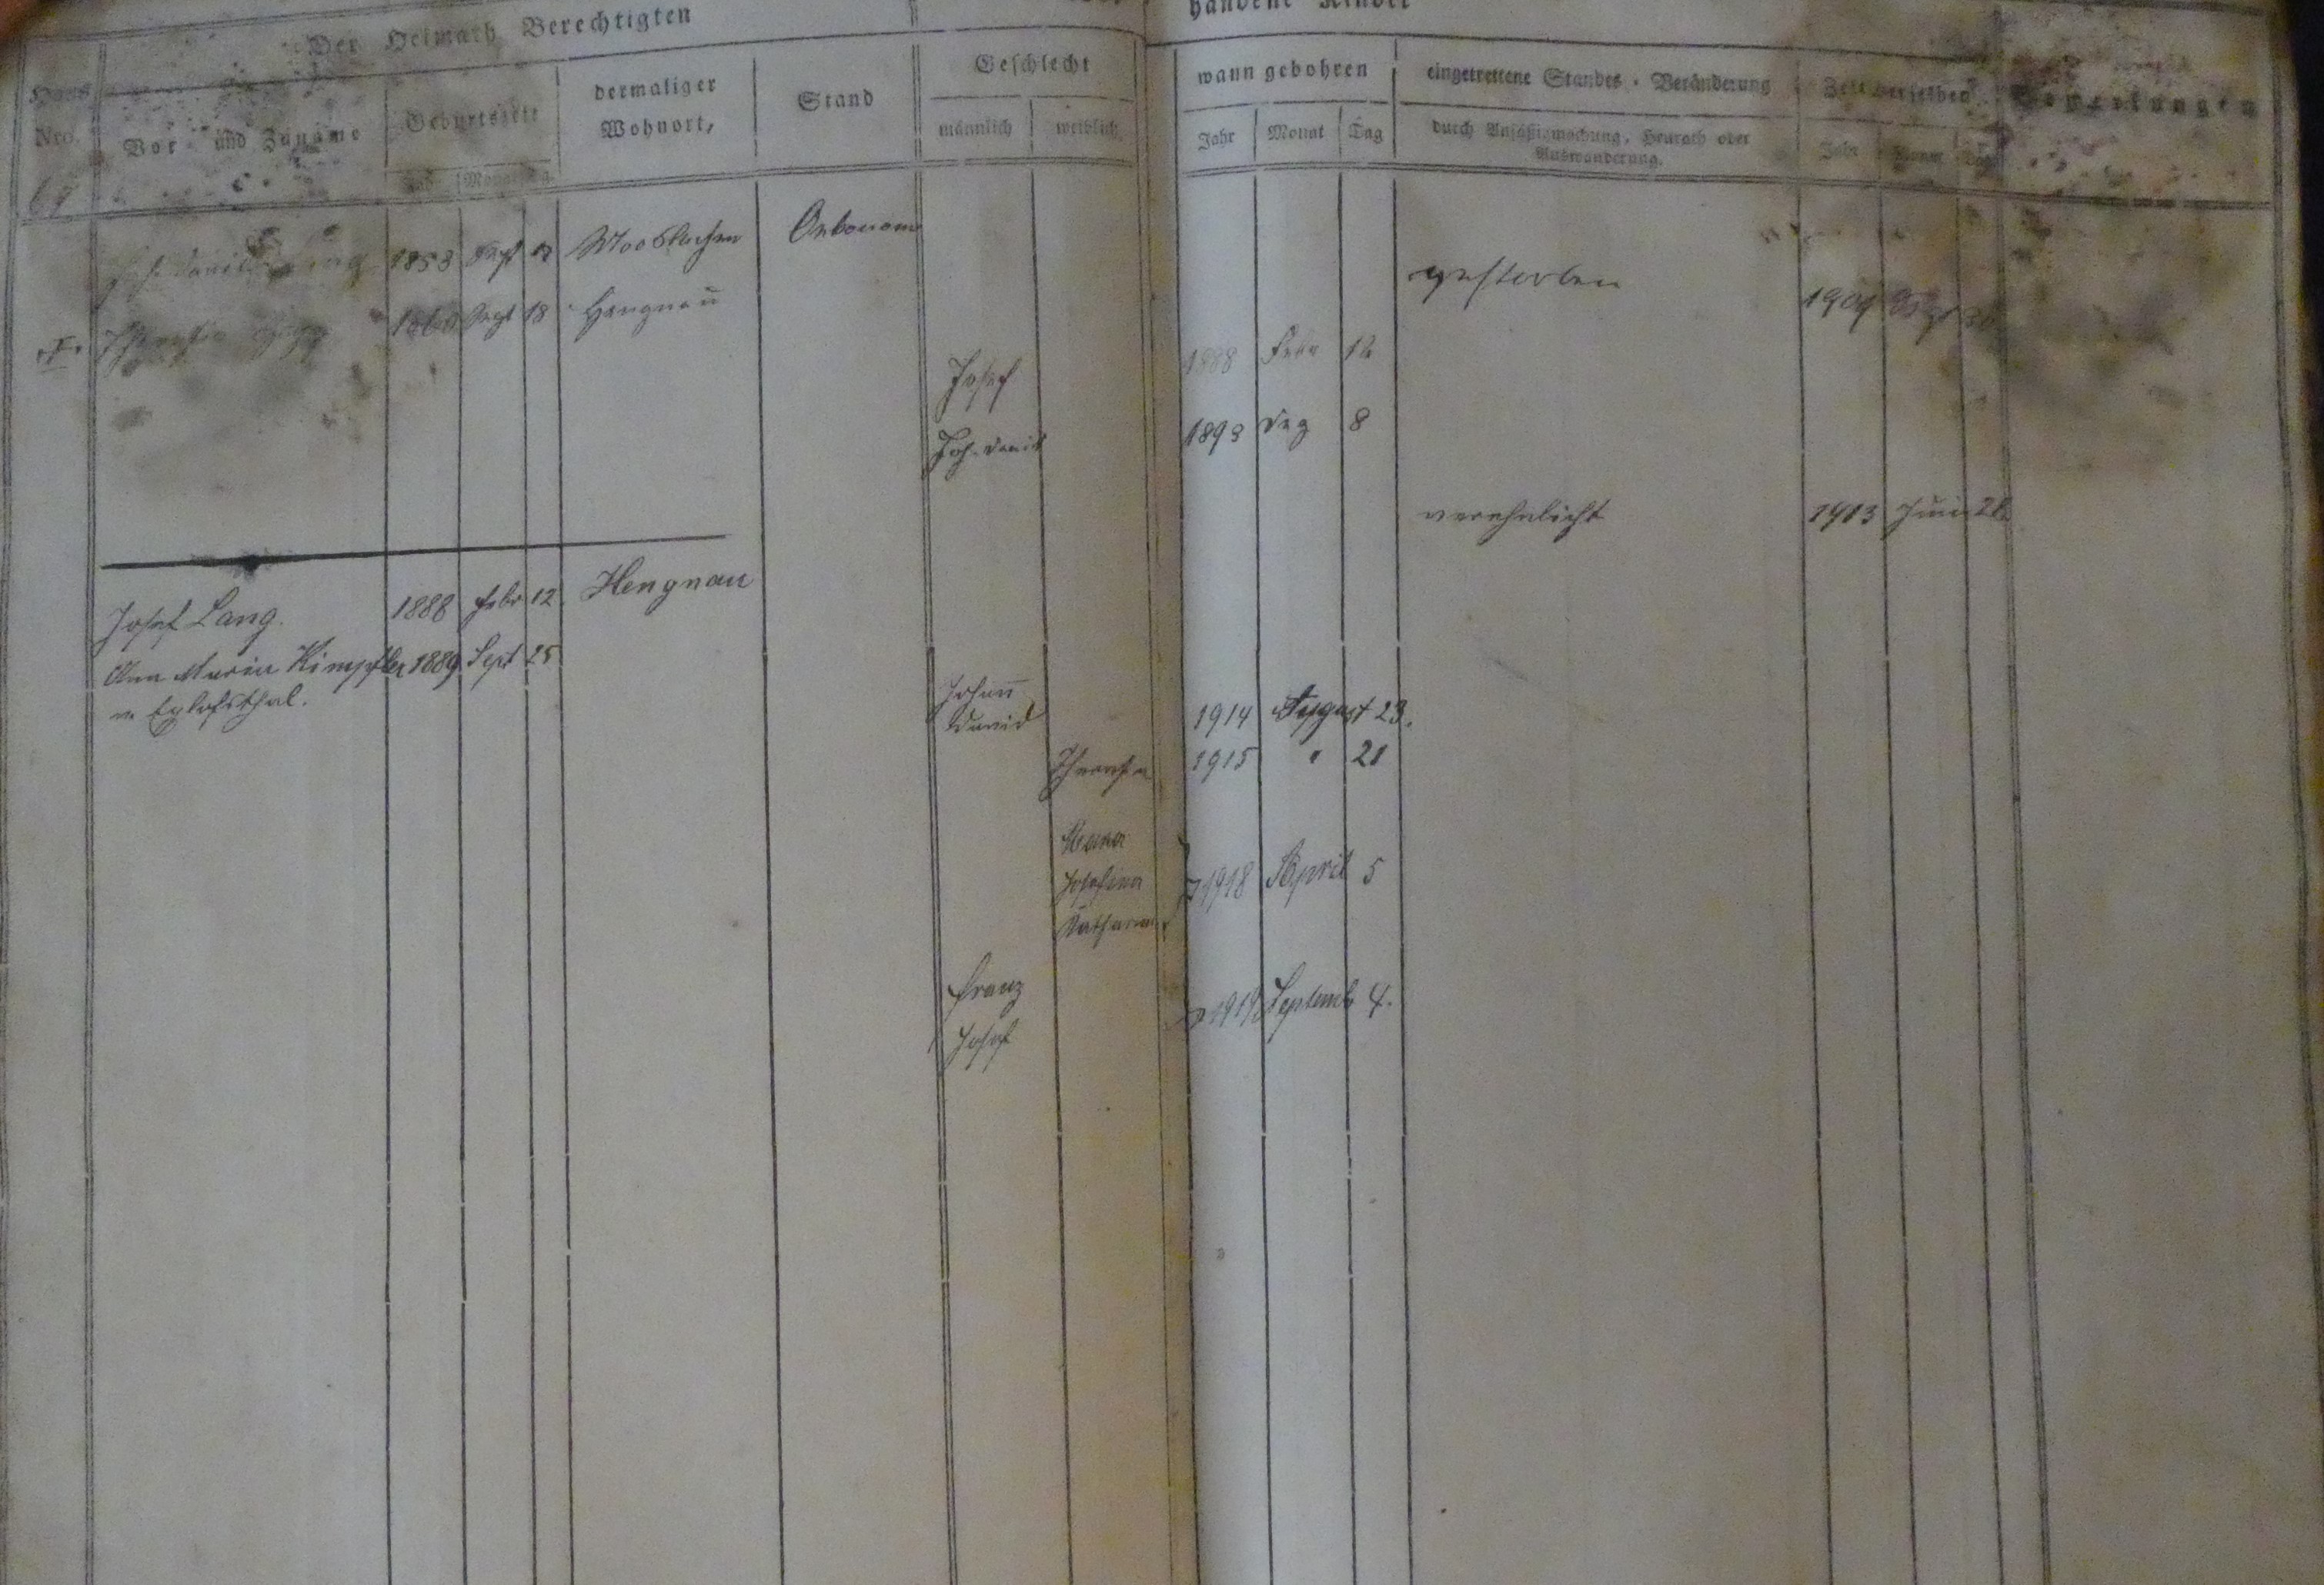 Der Heimath Berechtigten
handene Kinder
Haus
Nro.
Vor und Zuname
Geburtszeit
dermaliger
Wohnort,
Stand
Geschlecht
männlich
weiblich
wann gebohren
Jahr Monat Tag
eingetrettene Standes-Veränderung
durch Ansäßigmachung, Heurath oder
Auswanderung.
Zeit derselben
Jahr Monat Tag
Bemerkungen
1853 Sept
Oekonom
gestorben
Sept 18 Hengnau
1909
Josef 1888 Febr 12
Joh. David 1893 Dez 8
verehelicht 1913 Juni
Josef Lang. 1888 Febr 12. Hengnau
Ana Maria Kimpfler 1889 Sept 25
v. Eglofsthal.
Johann
David 1914 August 23.
Theresia 1915 " 21
Josefina 1918 April 5
Katharina
Franz
Josef 1919 Septemb 4.